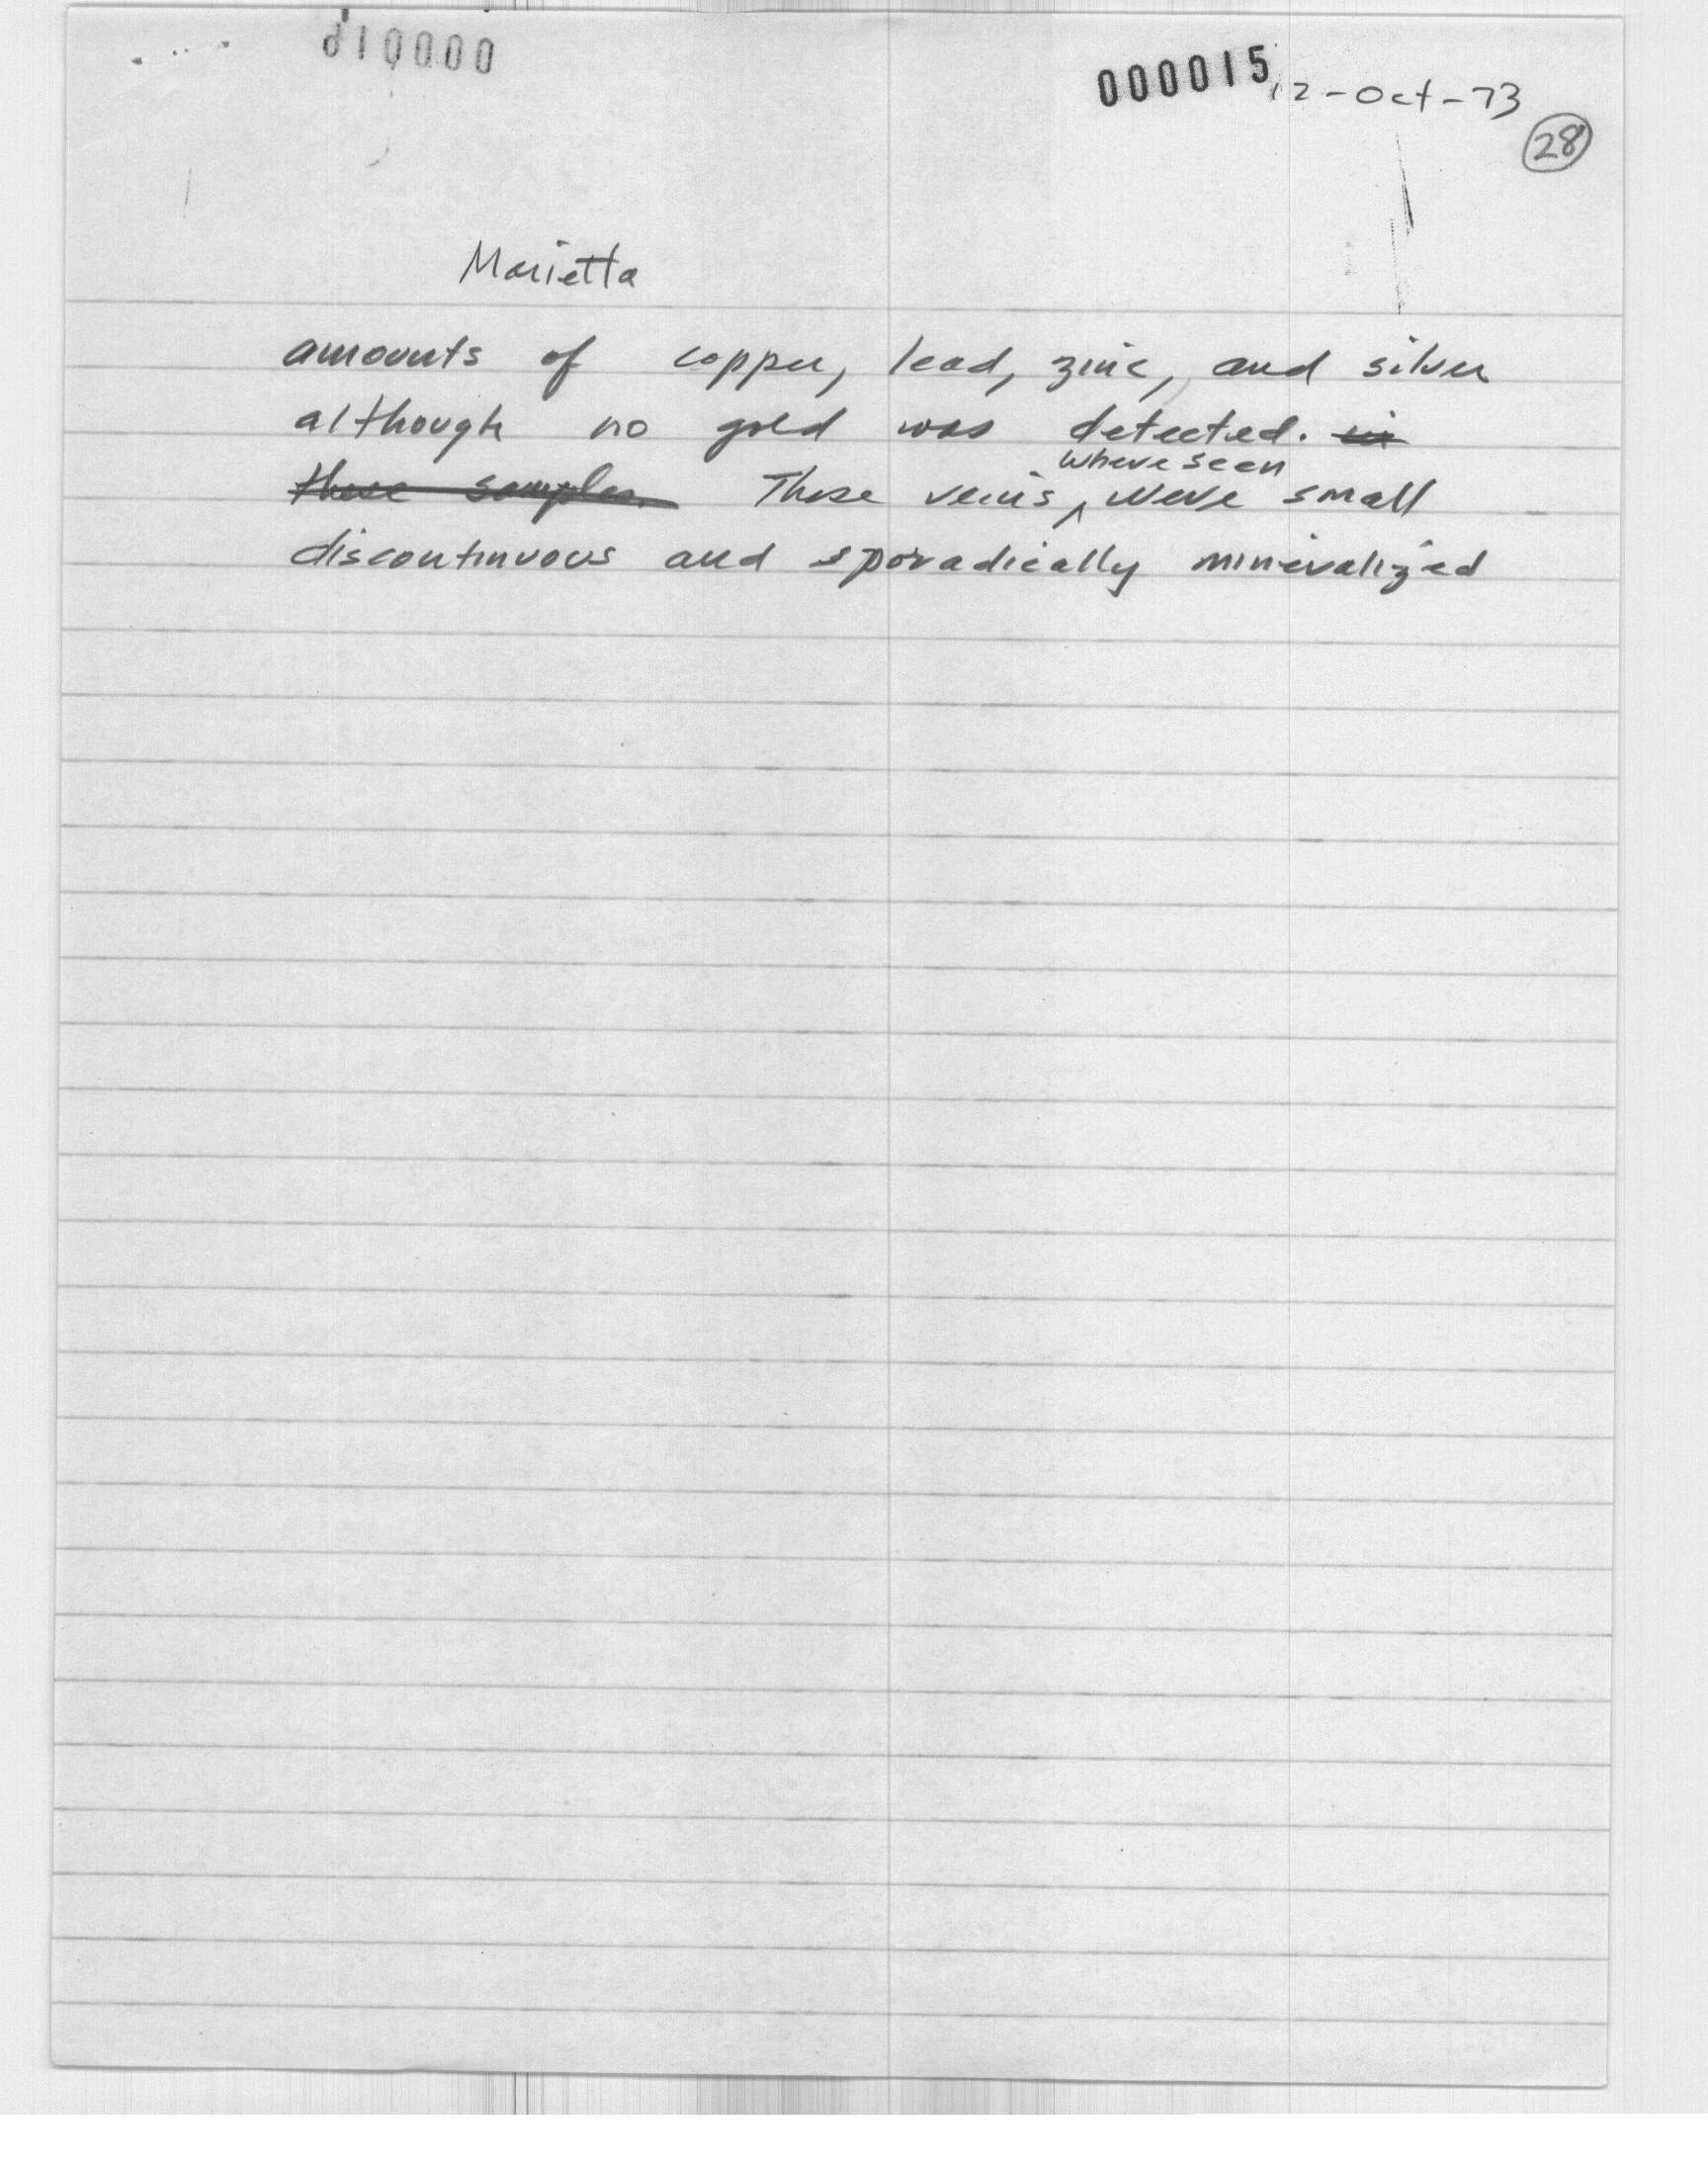 000015 12-Oct-73
28
Marietta
amounts of copper, lead, zinc, and silver
although no gold was detected. in
where seen
these samples. These veins ^ were small
discontinuous and sporadically mineralized